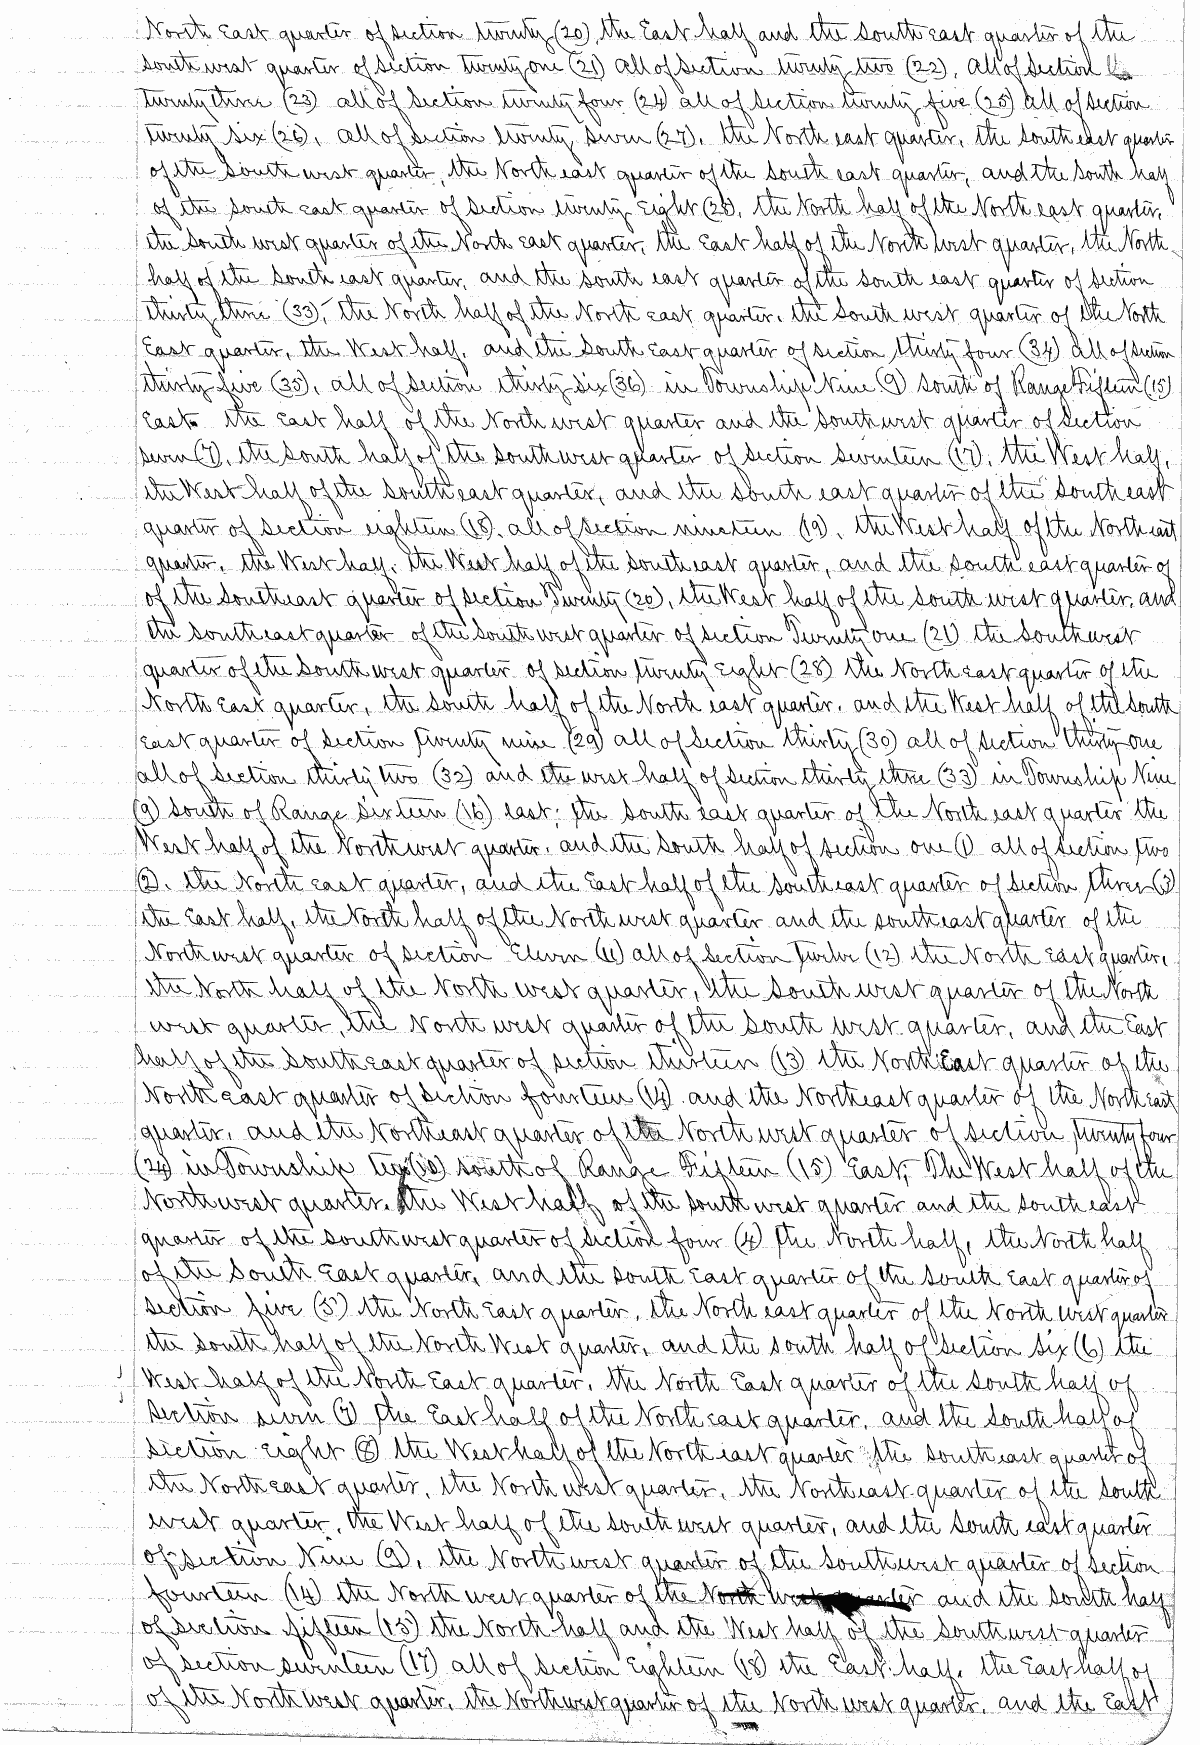 North East quarter of section twenty (20), the East half and the south east quarter of the
south west quarter of section twenty one (21) all of section twenty two (22), all of section
twenty three (23) all of section twenty four (24) all of section twenty five (25) all of section
twenty six (26), all of section twenty seven (27), the North east quarter, the south east quarter
of the South west quarter, the North east quarter of the south east quarter, and the south half
of the south east quarter of section twenty eight (28), the North half of the North east quarter,
the South west quarter of the North east quarter, the East half of the North west quarter, the North
half of the south east quarter, and the south east quarter of the south east quarter of section
thirty three (33), the North half of the North east quarter, the south west quarter of the North
East quarter, the West half, and the South East quarter of section thirty four (34) all of section
thirty five (35), all of section thirty six (36) in Township Nine (9) South of Range Fifteen (15)
East. the East half of the North west quarter and the southwest quarter of section
seven (7), the south half of the southwest quarter of section seventeen (17), the West half,
the West half of the south east quarter, and the south east quarter of the south east
quarter of section eighteen (18), all of section nineteen (19), the West half of the North east
quarter, the West half, the West half of the south east quarter, and the south east quarter of
of the southeast quarter of section Twenty (20), the West half of the south west quarter, and
the south east quarter of the south west quarter of section Twenty one (21) the southwest
quarter of the South west quarter of section twenty eight (28) the North East quarter of the
North East quarter, the south half of the North east quarter, and the West half of the South
East quarter of section twenty nine (29) all of section thirty (30) all of section thirty one
all of section thirty two (32) and the west half of section thirty three (33) in Township Nine
(9) south of Range Sixteen (16) east; the south east quarter of the North east quarter the
West half of the North west quarter, and the south half of section one (1) all of section two
(2), the North east quarter, and the East half of the south east quarter of section three (3)
the East half, the North half of the North west quarter and the southeast quarter of the
North west quarter of section Eleven (11) all of section Twelve (12) the North East quarter,
the North half of the North west quarter, the South west quarter of the North
west quarter, the North west quarter of the South west quarter, and the East
half of the South east quarter of section thirteen (13) the North East quarter of the
North east quarter of section fourteen (14) and the Northeast quarter of the North East
quarter, and the Northeast quarter of the North west quarter of section twenty four
(24) in Township ten (10) south of Range Fifteen (15) East; The West half of the
North west quarter, the West half of the south west quarter and the south east
quarter of the southwest quarter of section four (4) the North half, the North half
of the South East quarter, and the south East quarter of the south East quarter of
section five (5) the North East quarter, the North east quarter of the North west quarter
the south half of the North West quarter, and the south half of section six (6) the
West half of the North East quarter, the North East quarter of the south half of
section seven (7) the East half of the North east quarter, and the south half of
section eight (8) the West half of the North east quarter the south east quarter of
the North east quarter, the North west quarter, the Northeast quarter of the south
west quarter, the West half of the south west quarter, and the south east quarter
of section Nine (9), the North west quarter of the southwest quarter of section
fourteen (14) the North west quarter of the North west quarter and the south half
of section fifteen (15) the North half and the West half of the southwest quarter
of section seventeen (17) all of section Eighteen (18) the East half, the East half of
of the North west quarter, the Northwest quarter of the North west quarter, and the East